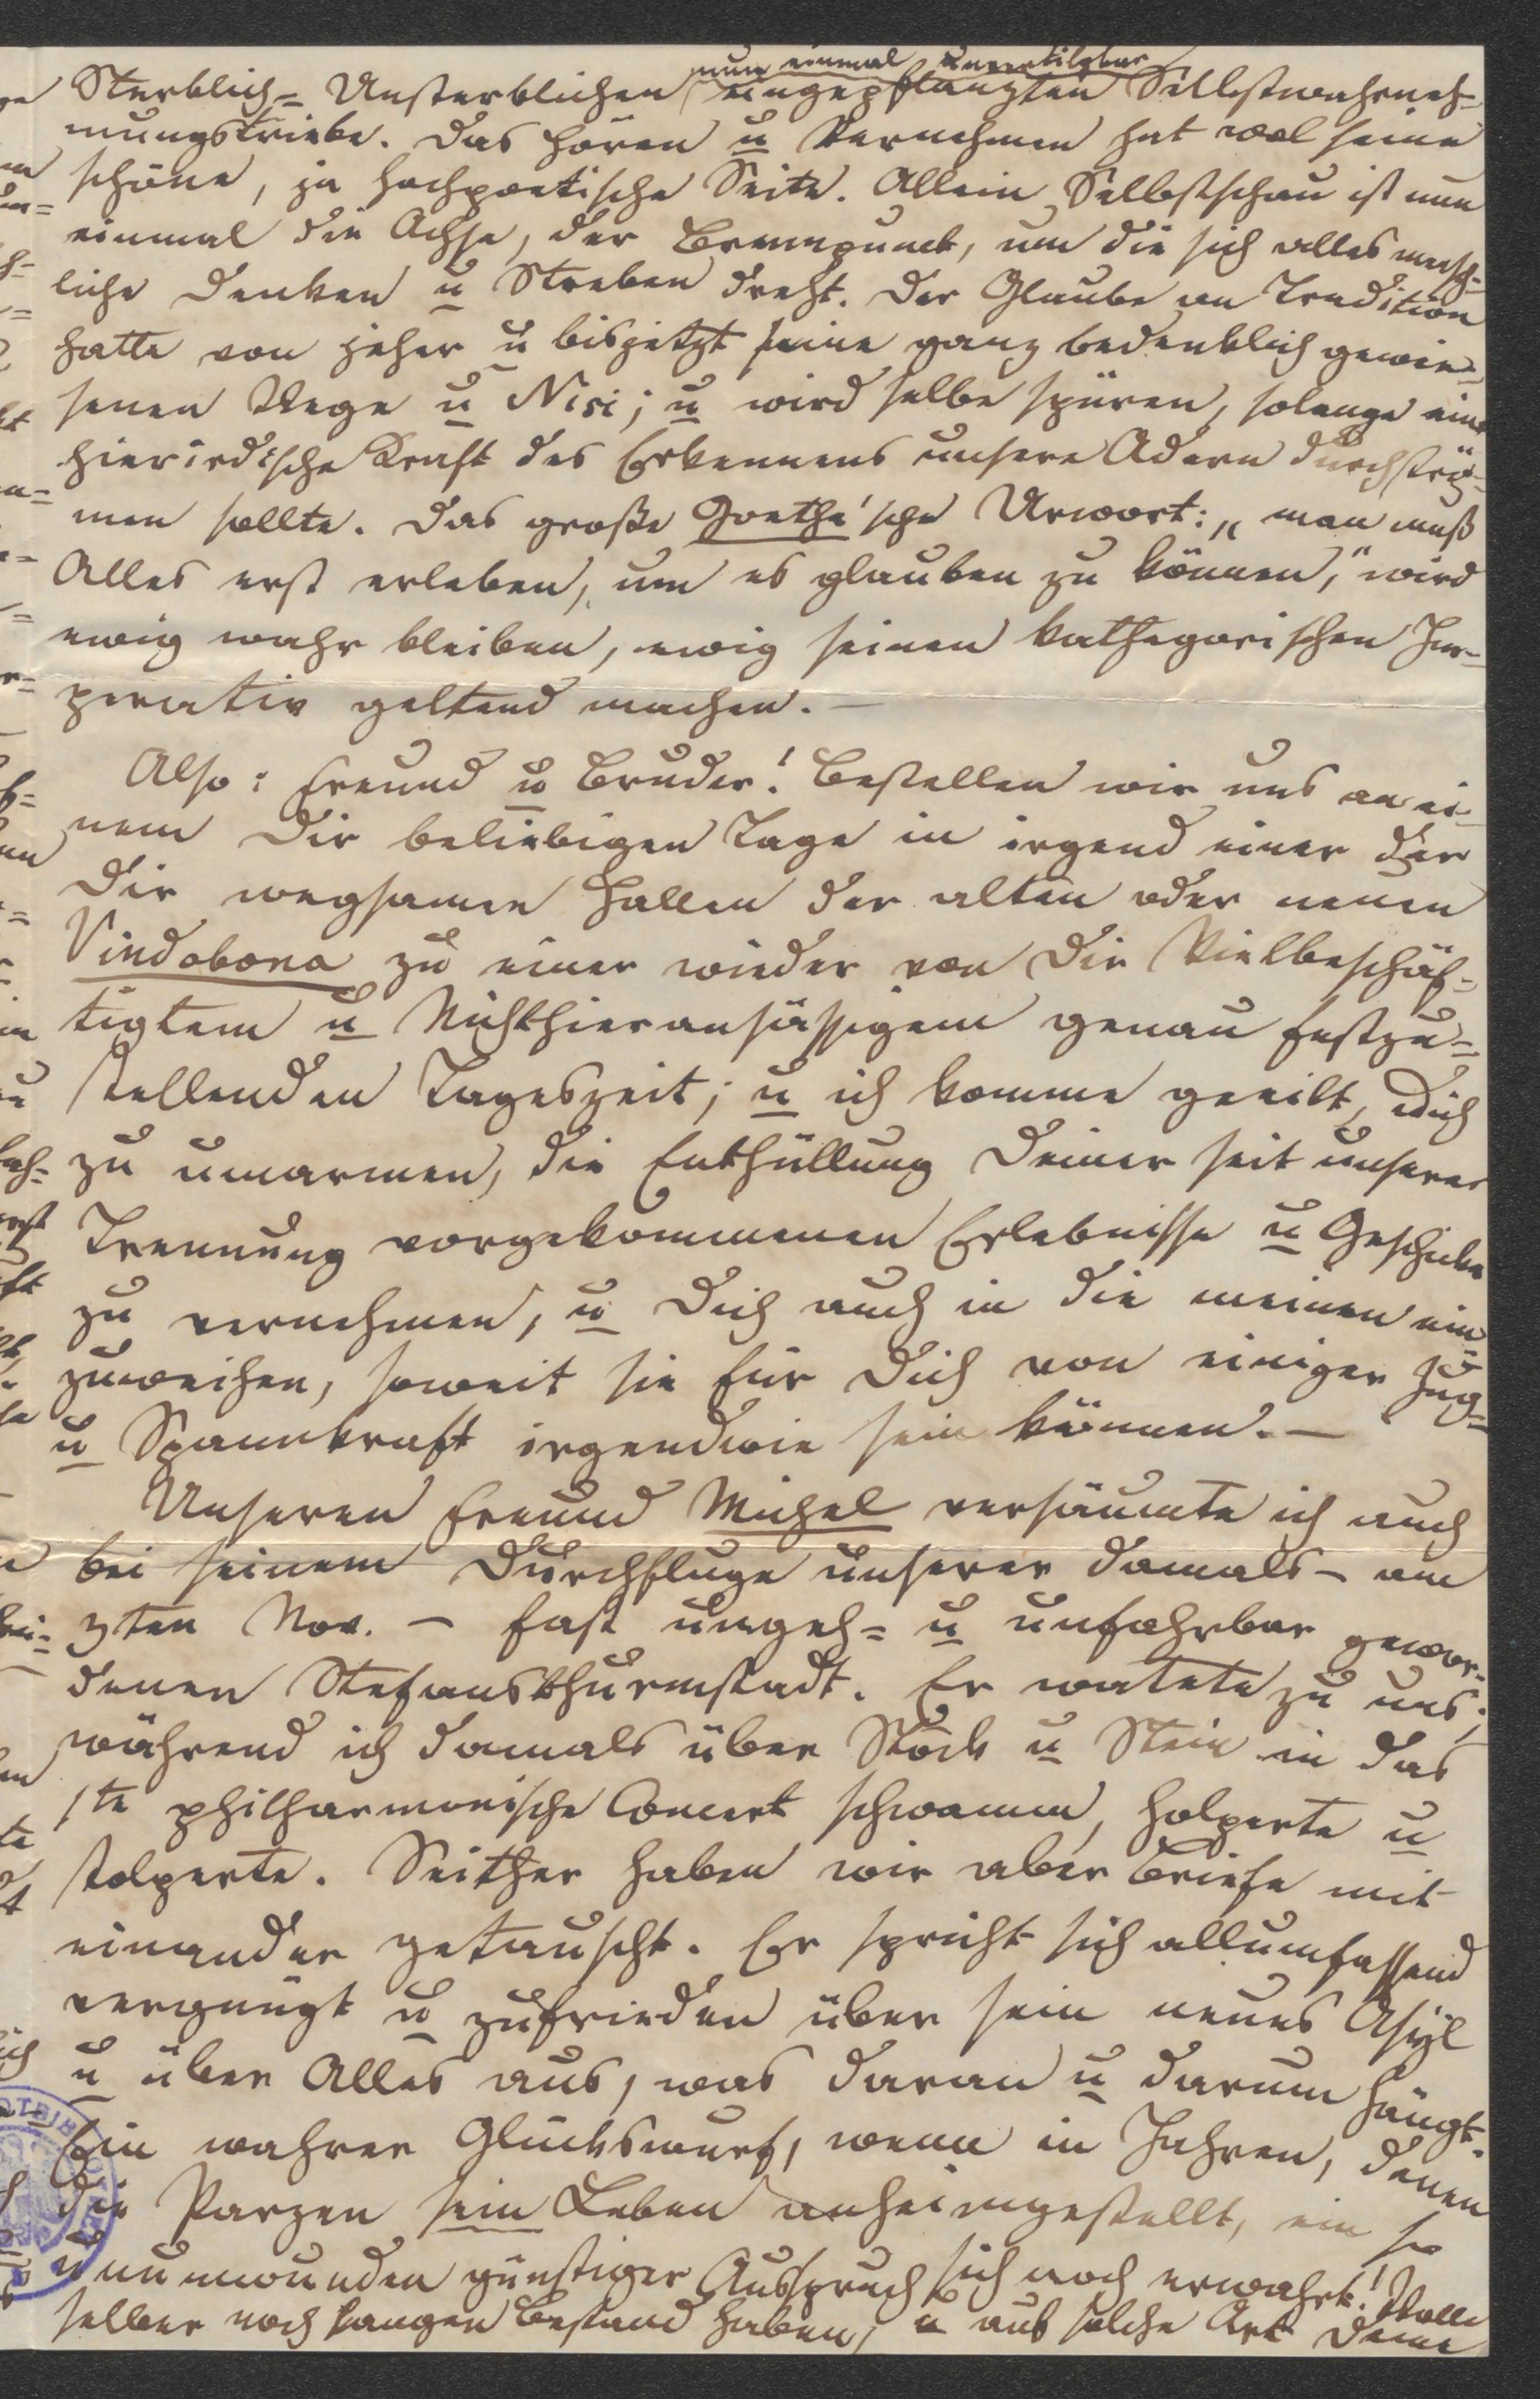 nun einmal unvertilgbar
Sterblich= Unsterblichen eingepflanzten Selbstwahrneh=
mungstriebe. Das Hören u Vernehmen hat wol seine
schöne, ja hochpoetische Seite. Allein Selbstschau ist nun
einmal die Achse, der Brennpunct, um die sich alles mensch=
liche Denken u Streben dreht. Der Glaube an Tradition
hatte von jeher u bisjetzt seine ganz bedenklich gewie=
senen Wege u Nisi; u wird selbe spüren, solange eine
hierirdische Kraft des Erkennens unsere Adern durchströ=
men sollte. Das große Goethe'sche Urwort: „man muß
Alles erst erleben, um es glauben zu können," wird
ewig wahr bleiben, ewig seinen kathegorischen Im=
perativ geltend machen. —
Also: Freund u Bruder! Bestellen wir uns an ei=
nem Dir beliebigen Tage in irgend einer der
Dir wegsamen Hallen der alten oder neuen
Vindobona zu einer wieder von Dir Vielbeschäf=
tigtem u Nichthieransässigem genau festzu=
stellenden Tageszeit; u ich komme geeilt, Dich
zu umarmen, die Enthüllung Deiner seit unserer
Trennung vorgekommenen Erlebnisse u Geschicke
zu vernehmen, u Dich auch in die meinen ein=
zuweihen, soweit sie für Dich von einiger Zug=
u Spannkraft irgendwie sein können. —
Unseren Freund Michel versäumte ich auch
bei seinem Durchfluge unserer damals – am
3ten Nov. – fast ungeh= u unfahrbar gewor=
denen Stefansthurmstadt. Er watete zu uns;
während ich damals über Stock u Stein in das
1te philharmonische Concert schwamm, holperte u
stolperte. Seither haben wir aber Briefe mit
einander getauscht. Er spricht sich allumfassend
vergnügt u zufrieden über sein neues Asÿl
u über Alles aus, was daran u darum hängt.
Ein wahrer Glückswurf, wenn in Jahren, denen
die Parzen sein Leben anheimgestellt, ein so
unumwunden günstiger Ausspruch sich noch erwahrt! Wolle
selber noch langen Bestand haben, u auf solche Art Deine